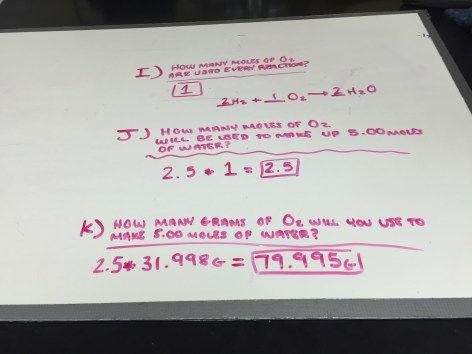 I) HOW MANY MOLES OF O2
ARE USED EVERY REACTION?
1
2H2 + 1 O2 → 2 H2O
J) HOW MANY MOLES OF O2
WILL BE USED TO MAKE UP 5.00 MOLES
OF WATER?
2.5 * 1 = 2.5
K) HOW MANY GRAMS OF O2 WILL YOU USE TO
MAKE 5.00 MOLES OF WATER?
2.5* 31.998G = 79.995G